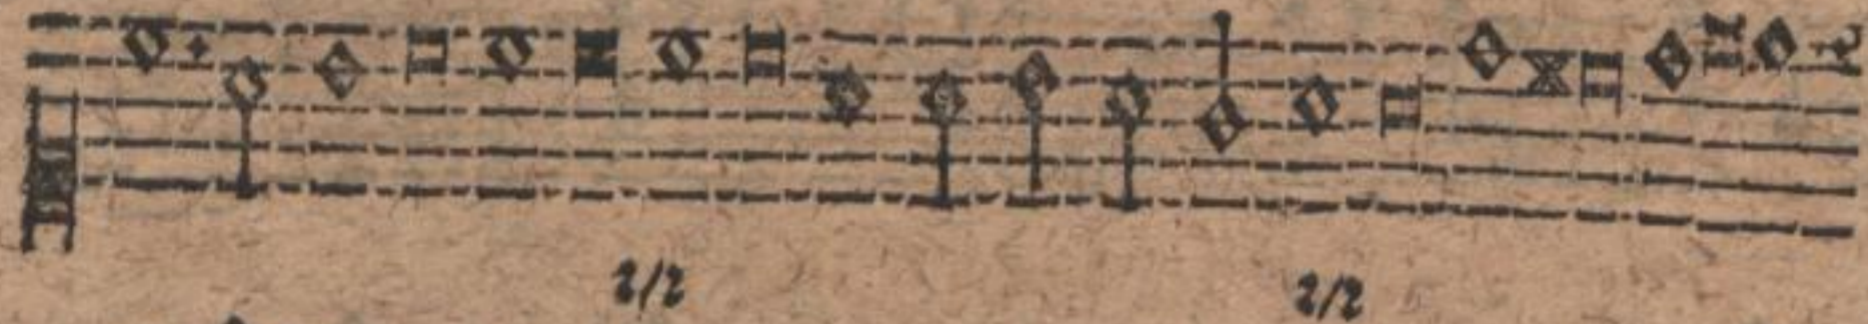 2/2 2/2